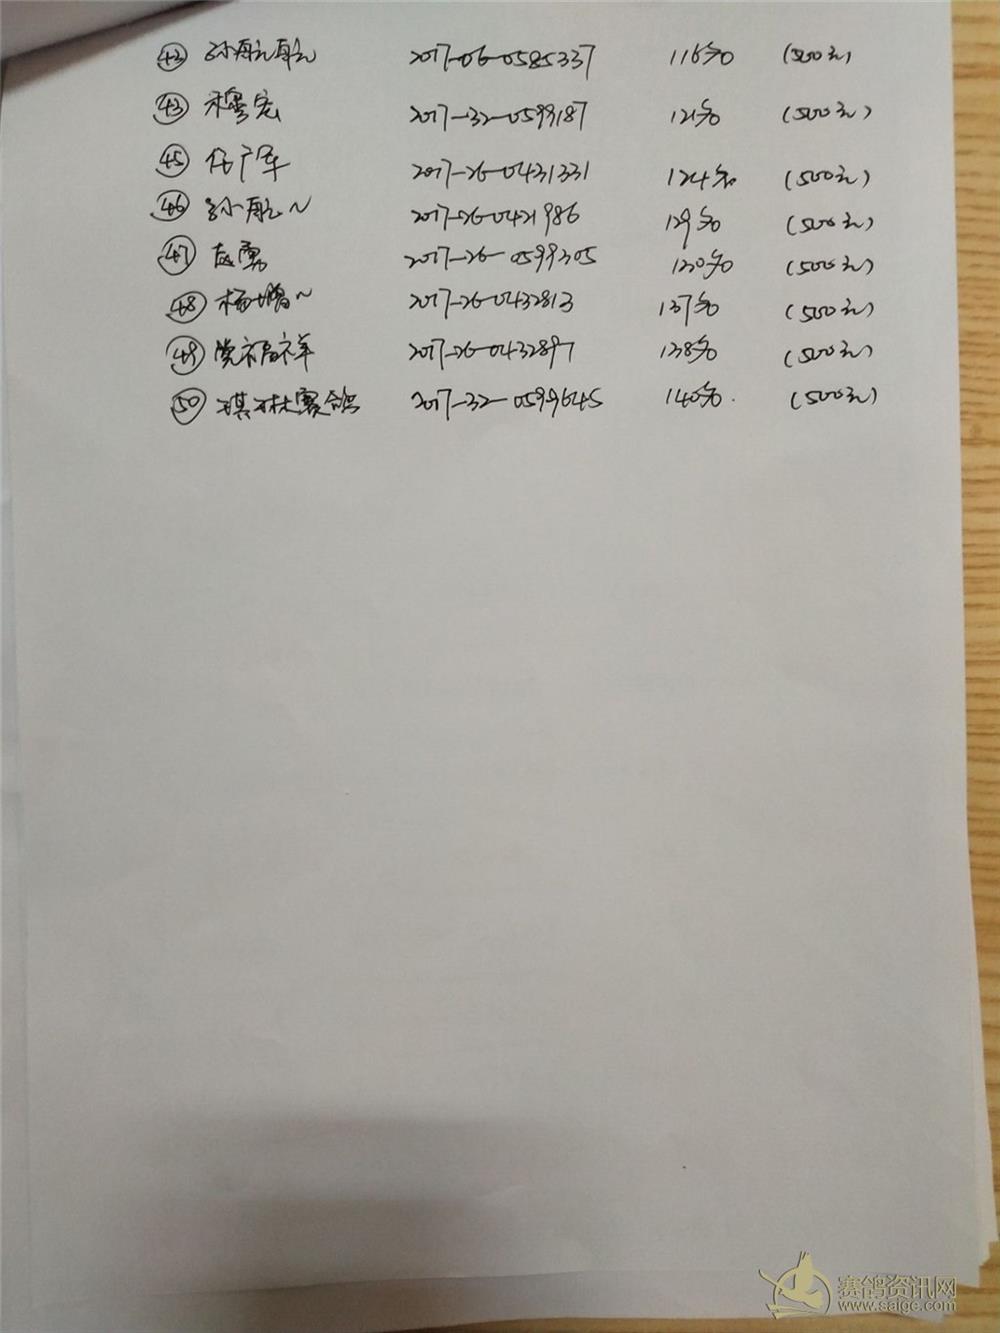 ㊸ 孙航航 2017-06-0585337 116名 (500元)
㊸ 穆宏 2017-32-0599187 121名 (500元)
㊺ 任广军 2017-26-0431331 124名 (500元)
㊻ 孙航~ 2017-26-0421986 129名 (500元)
㊼ 赵勇 2017-26-0599305 130名 (500元)
㊽ 杨增~ 2017-26-0432813 137名 (500元)
㊾ 党福祥 2017-26-0432897 138名 (500元)
㊿ 琪林赛鸽 2017-32-0599645 140名. (500元)
赛鸽资讯网
www.saige.com